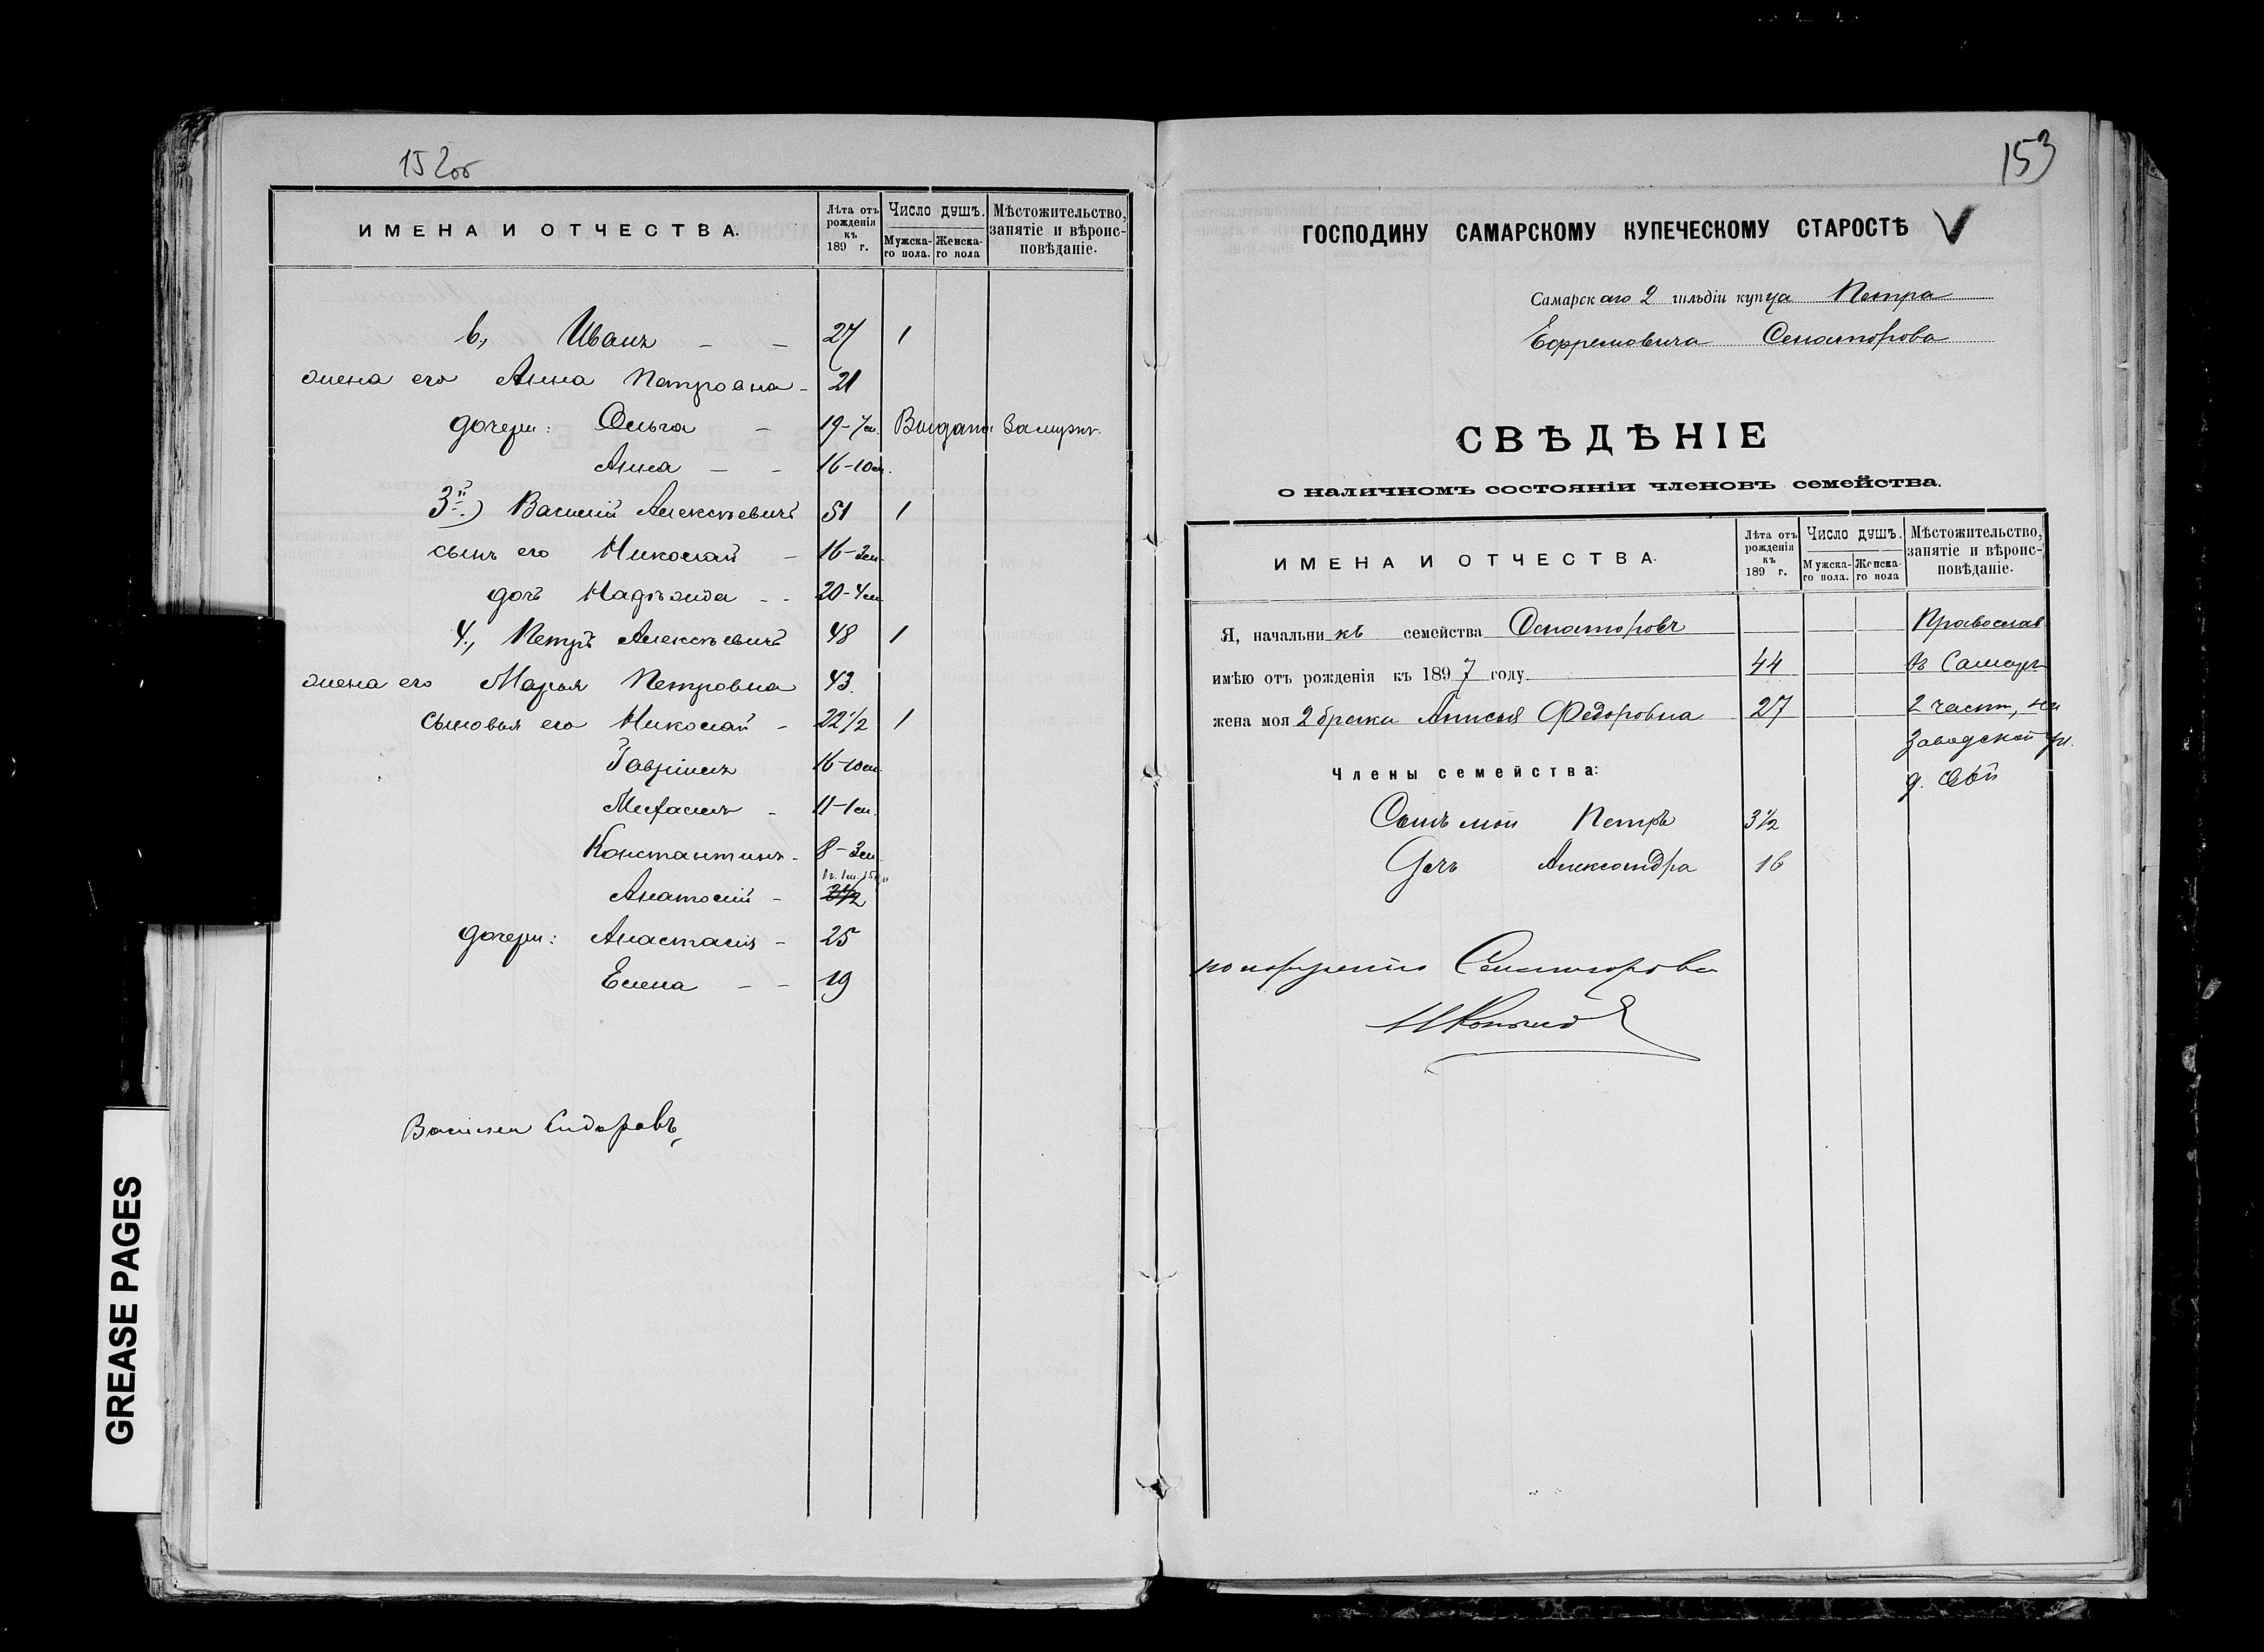 152об
ИМЕНА И ОТЧЕСТВА.
Лѣта отъ рожденія къ 189 г.
Число душъ.
Мужска-го пола.
Женска-го пола
Мѣстожительство, занятіе и вѣроис-повѣданіе.
в., Иванъ - - 27 1
жена его Анна Петровна - 21
дочери: Ольга - 19-7м. Выдана Замужъ.
Анна - - 16-10м.
3й) Василій Алексѣевичъ 51 1
сынъ его Николай - 16-3м.
дочь Надѣжда - - 20-4м
4., Петръ Алексѣевичъ 48 1
жена его Марья Петровна 43.
Сыновья его Николай - 22 1/2 1
Гавріилъ 16-10м.
Михаилъ - 11-1м.
Константинъ - 8-3м.
Анатолій -
дочери: Анастасія - 25
Елена - - 19
Василий Сидоровъ
GREASE PAGES
153
ГОСПОДИНУ САМАРСКОМУ КУПЕЧЕСКОМУ СТАРОСТѢ
Самарскаго 2 гильдіи купца Петра
Ефремовича Сенаторова
СВѢДѢНІЕ
о наличномъ состояніи членовъ семейства.
ИМЕНА И ОТЧЕСТВА.
Лѣта отъ рожденія къ 189 г.
Число душъ.
Мужска-го пола.
Женска-го пола
Мѣстожительство, занятіе и вѣроис-повѣданіе.
Я, начальникъ семейства Сенаторовъ Православ
имѣю отъ рожденія къ 1897 году 44 въ Самарѣ
жена моя 2 брака Анисья Федоровна 27 2 част, на
Заводской ул.
Члены семейства: д.
Сынъ мой Петръ 3 1/2
Дочь Александра 16
Сенаторова